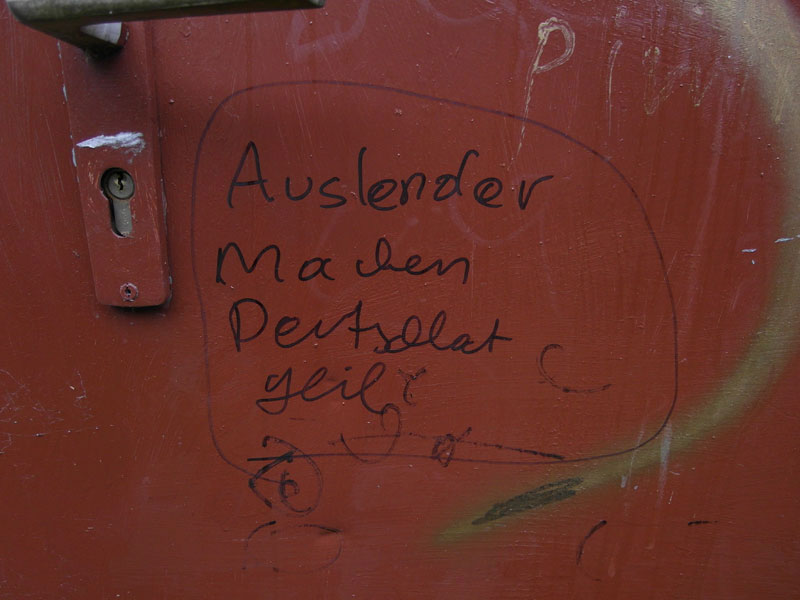 Auslender
Machen
Deutschlat
geil